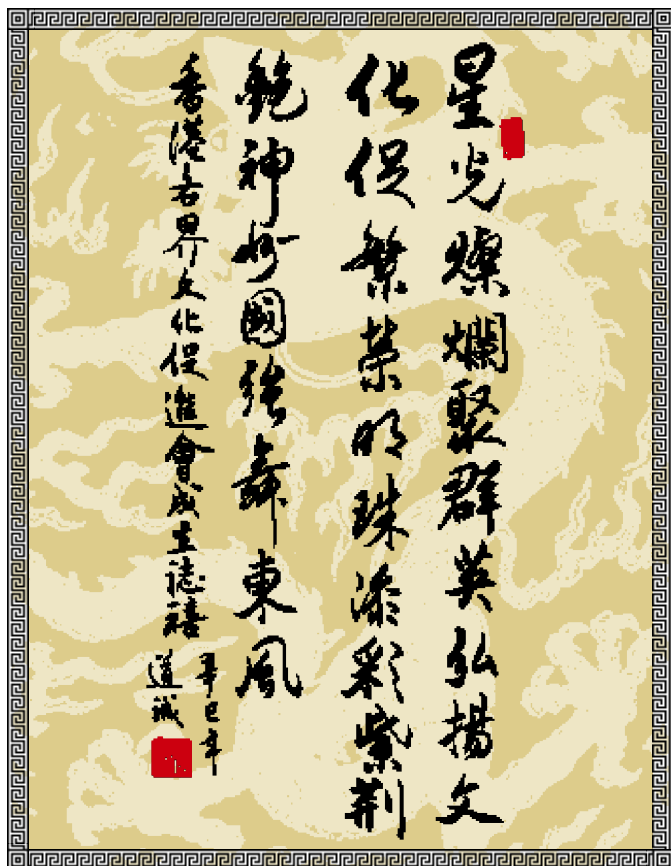 星光燦爛聚群英弘揚文
化促繁榮明珠添彩紫荊
艷神州國強舞東風
香港各界文化促進會成立誌禧
辛巳年
道誠